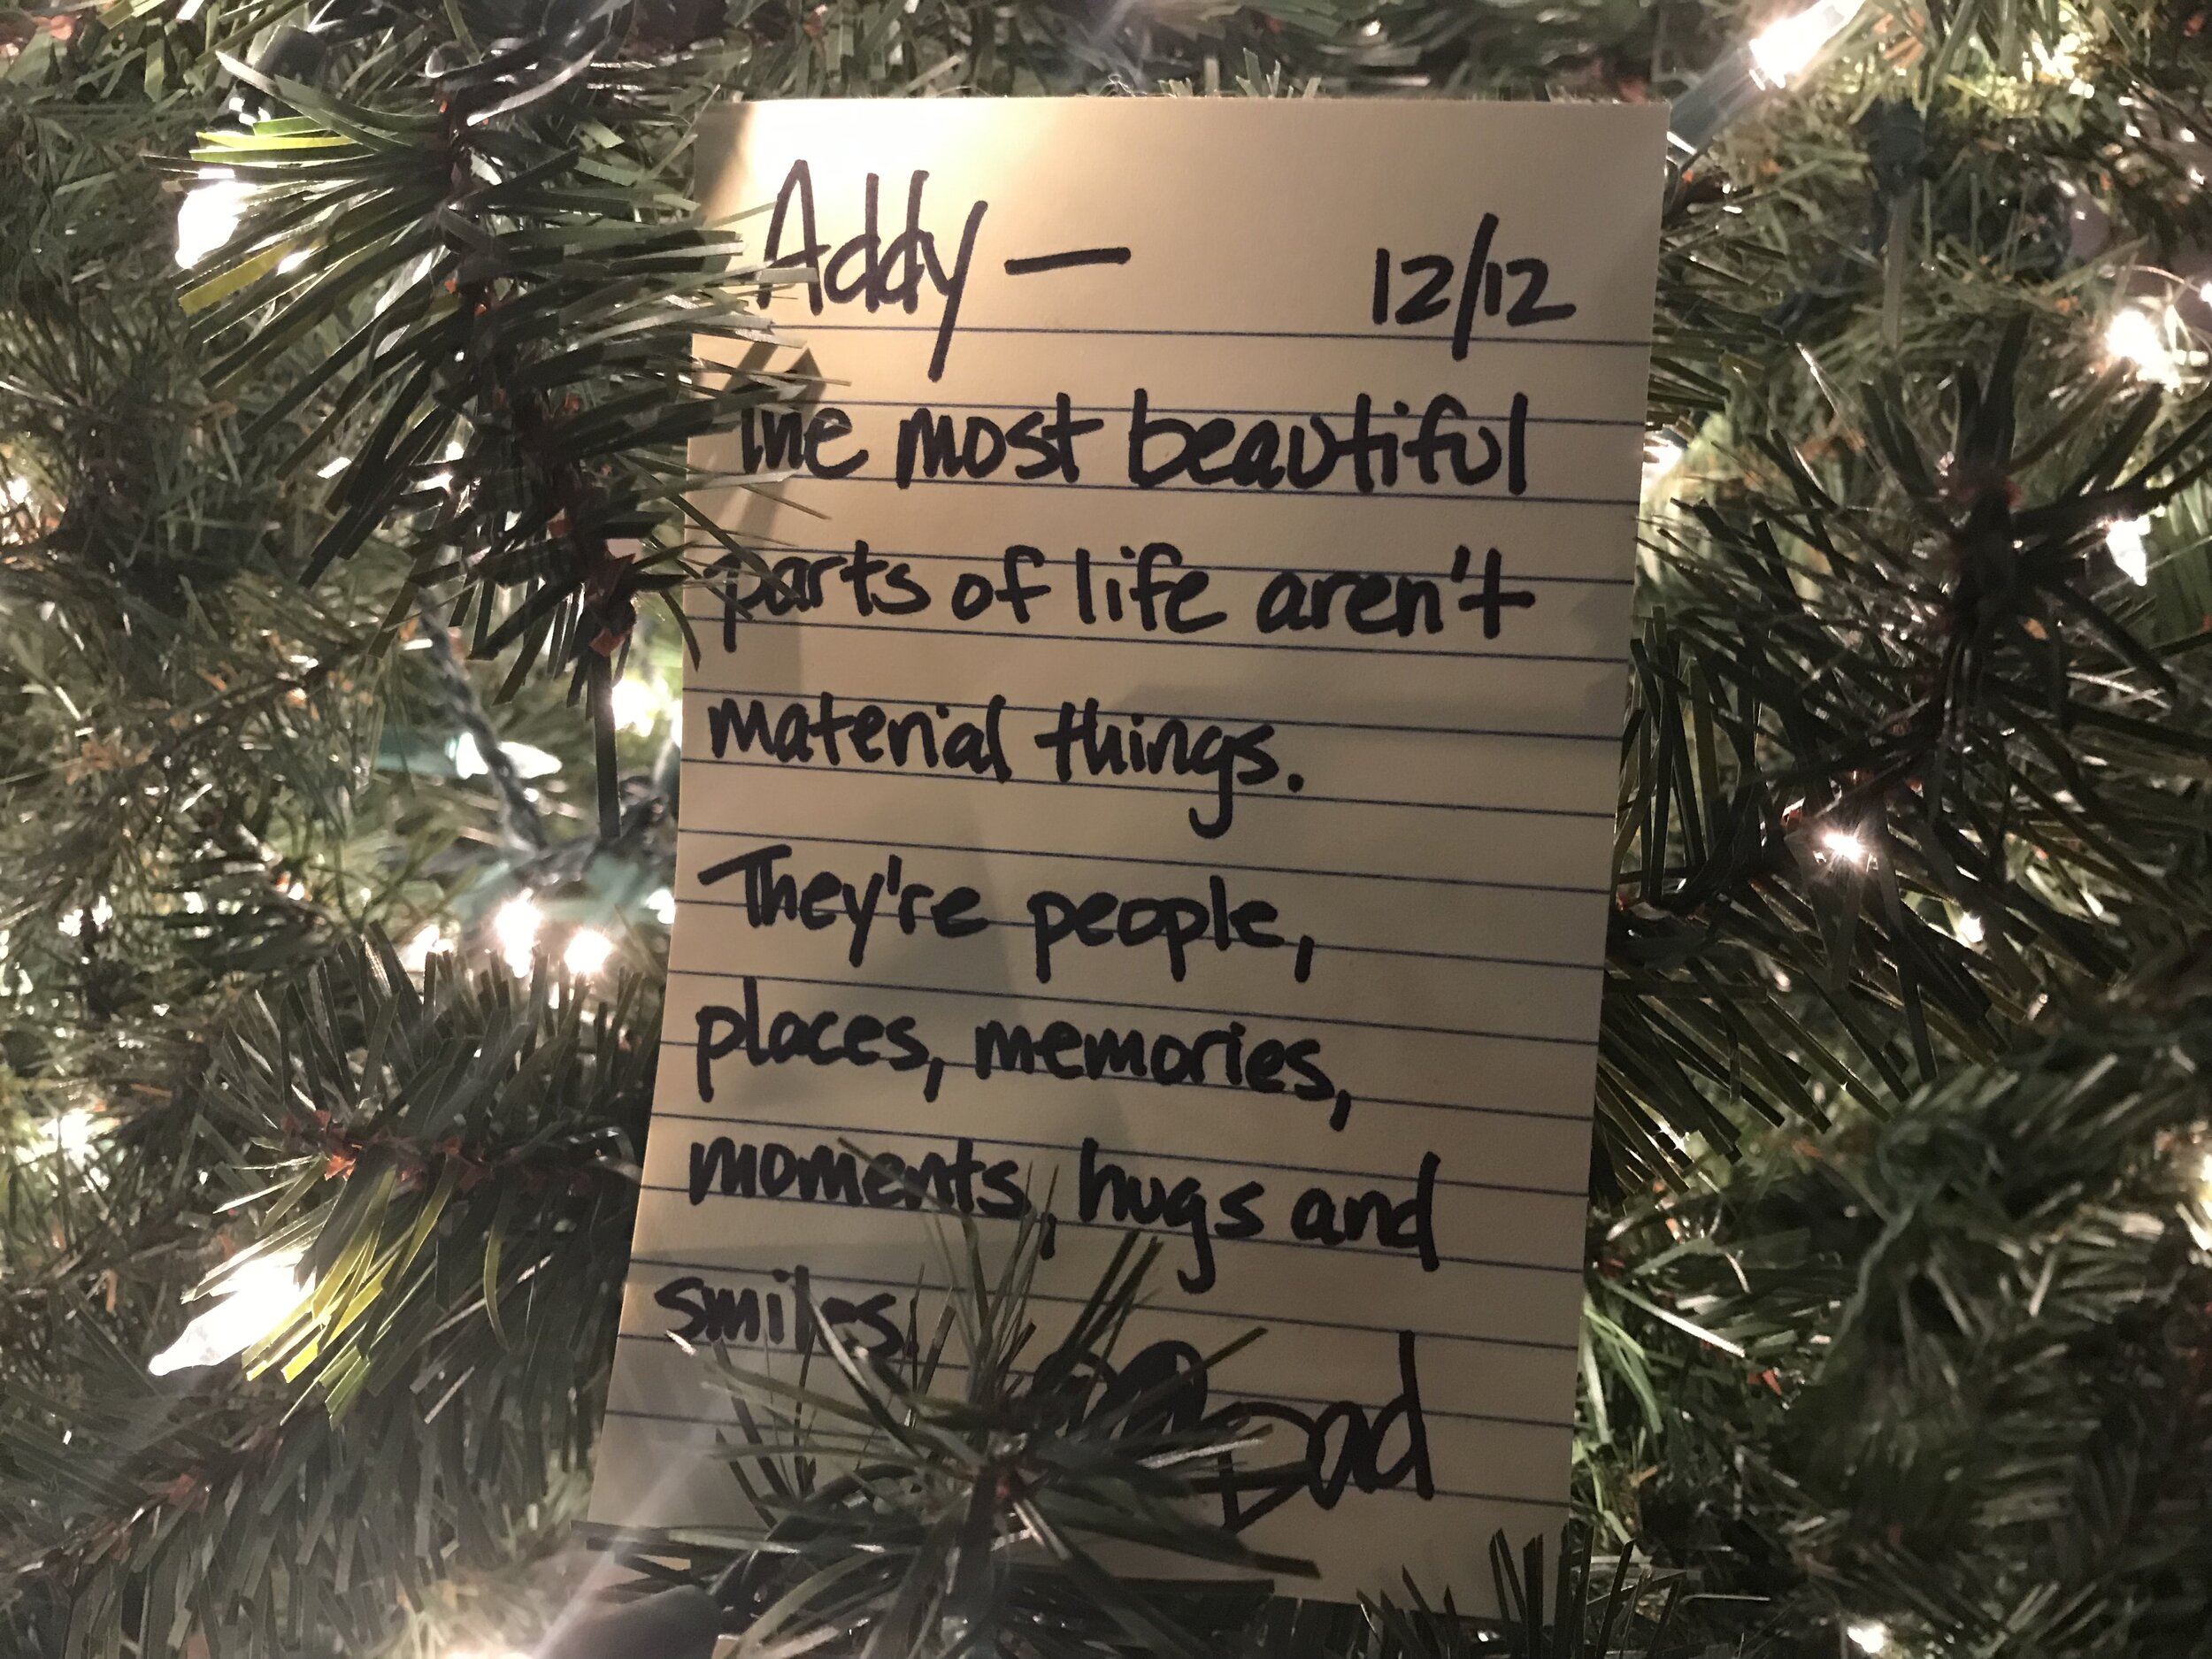 Addy — 12/12
The most beautiful
parts of life aren't
material things.
They're people,
places, memories,
moments, hugs and
smiles.
Dad